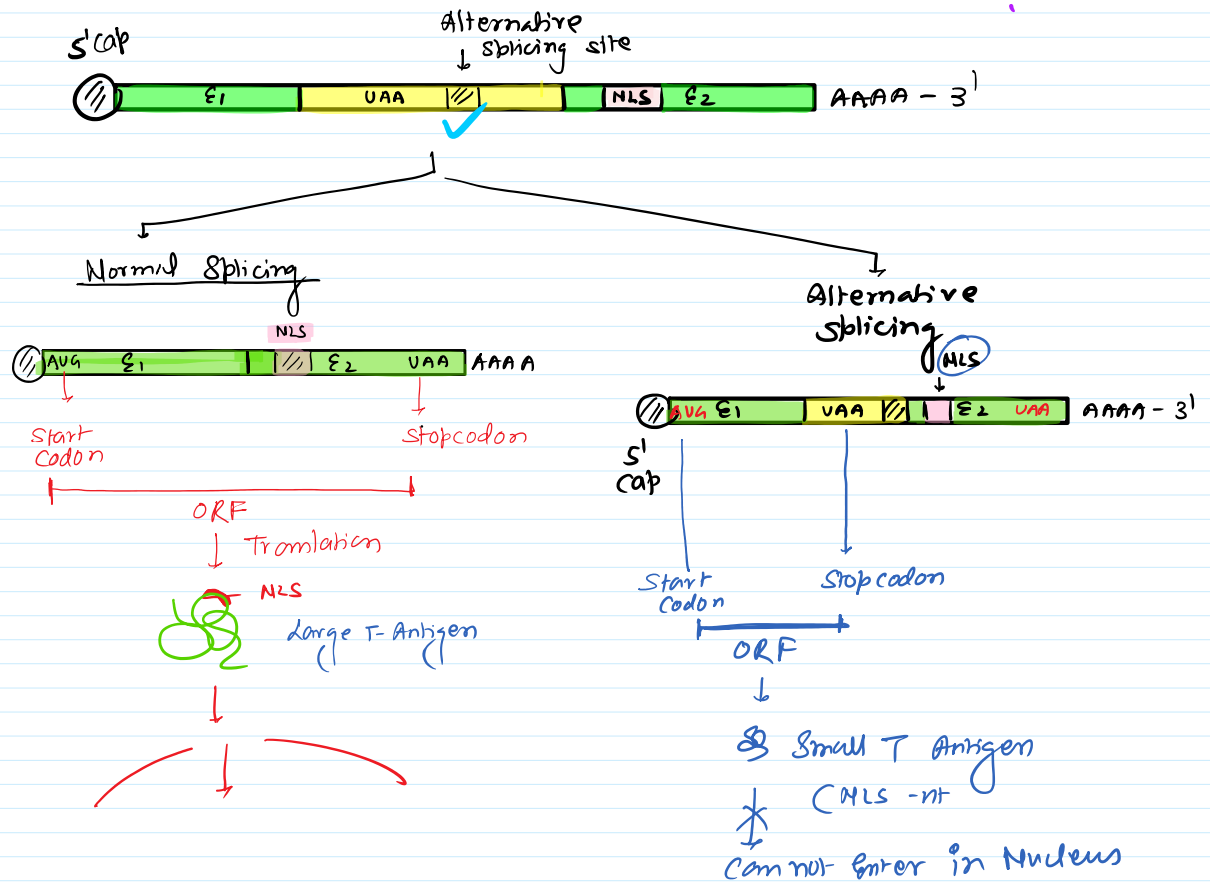 5' cap
Alternative
splicing site
E1 UAA NLS E2 AAAA - 3'
Normal Splicing
NLS
AUG E1 E2 UAA AAAA
Start
Codon
Stopcodon
ORF
Translation
NLS
Large T-Antigen
Alternative
splicing
NLS
AUG E1 UAA E2 UAA AAAA - 3'
5'
cap
Start
Codon
Stopcodon
ORF
Small T Antigen
(NLS -nt
Can not Enter in Nucleus